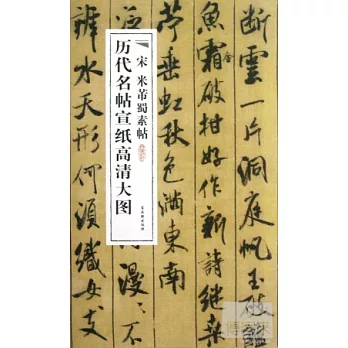 历代名帖宣纸高清大图
宋 米芾蜀素帖
断雲一片洞庭帆玉破鱸
魚霜破柑好作新詩継桑
苧垂虹秋色滿東南
漫漫
辨水天形何須織女支